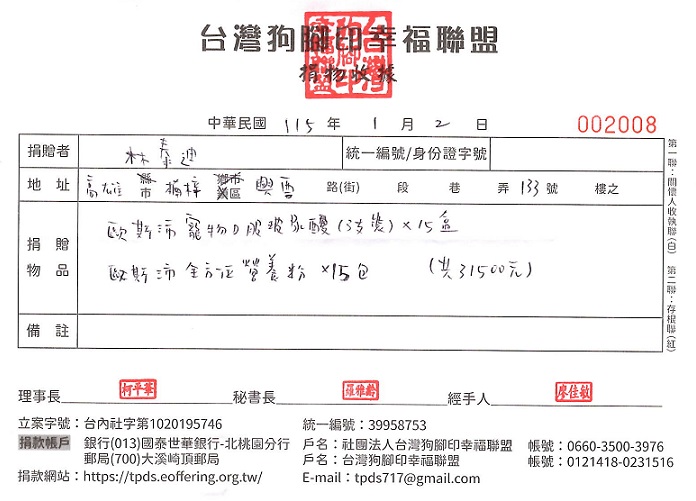 台灣狗腳印幸福聯盟
捐物收據
中華民國 115 年 1 月 2 日 002008
捐贈者 林泰迪 統一編號/身份證字號
地 址 高雄 縣市 楠梓 鄉市鎮區 興西 路(街) 段 巷 弄 133 號 樓之
捐贈物品
歐斯沛寵物口服玻尿酸(活炎)×15盒
歐斯沛全方位營養粉 ×15包 (共31500元)
備 註
第一聯:關懷人收執聯(白) 第二聯:存根聯(紅)
理事長 柯平輩 秘書長 羅雅齡 經手人 廖佳敏
立案字號:台內社字第1020195746 統一編號:39958753
捐款帳戶 銀行(013)國泰世華銀行-北桃園分行 戶名:社團法人台灣狗腳印幸福聯盟 帳號:0660-3500-3976
郵局(700)大溪崎頂郵局 戶名:台灣狗腳印幸福聯盟 帳號:0121418-0231516
捐款網站:https://tpds.eoffering.org.tw/ E-mail:tpds717@gmail.com